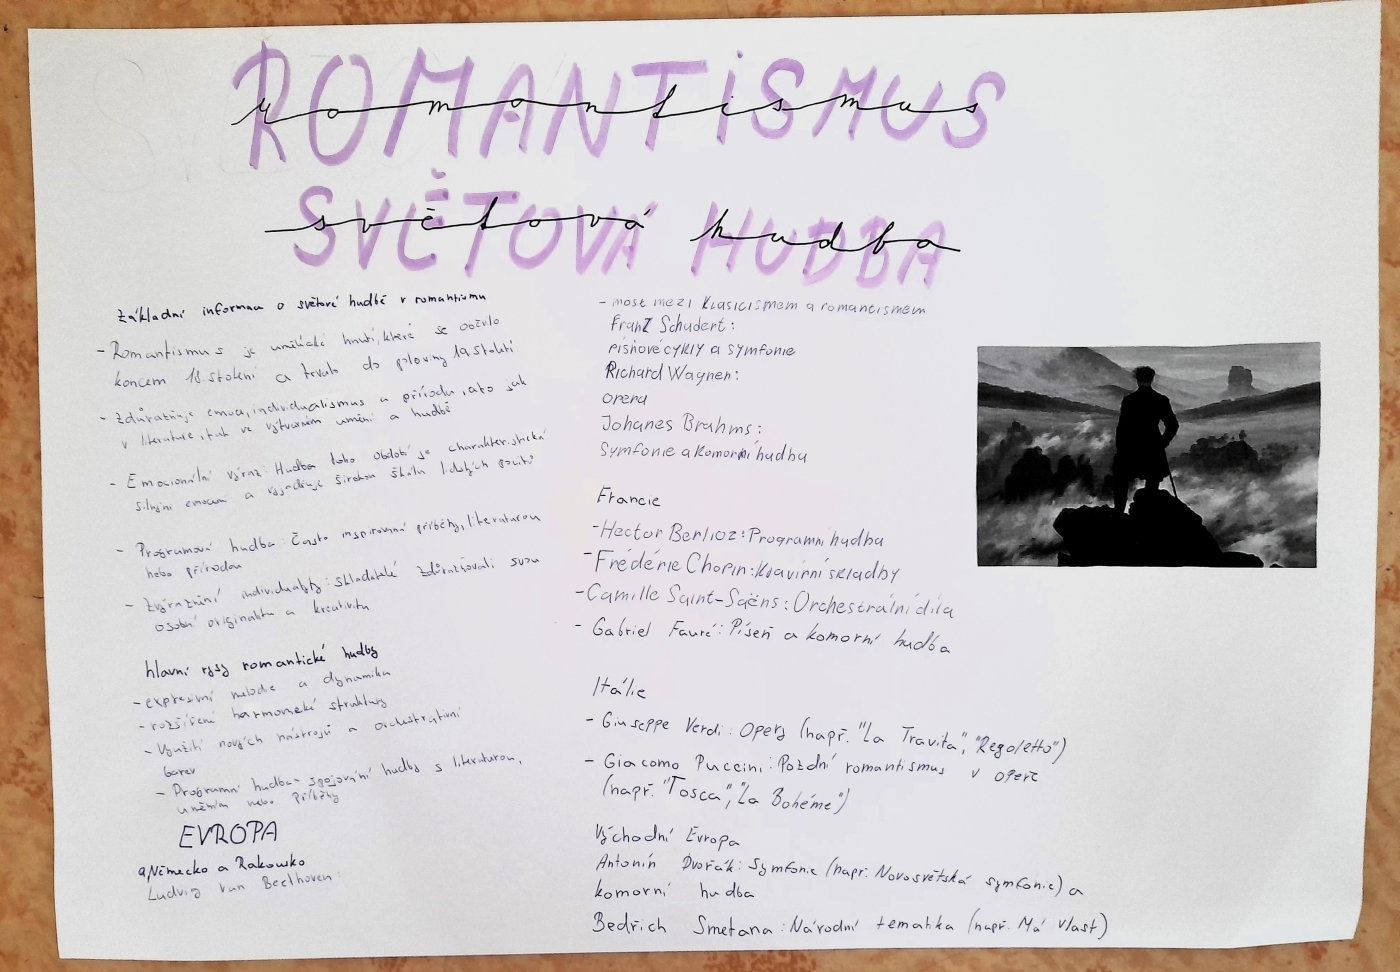 ROMANTISMUS
romantismus
SVĚTOVÁ HUDBA
světová hudba
základní informace o světové hudbě v romantismu
- Romantismus je umělecké hnutí, které se
koncem 18. století a trvalo do poloviny 19. století
- zdůrazňuje emoce, individualismus a přírodu, ato jak
v literatuře, tak ve výtvarném umění a hudbě
- Emocionální výraz: Hudba toho období je charakteristická
silnými emocemi a vyjadřuje širokou škálu lidských pocitů
- Programová hudba: Často inspirovaná příběhy, literaturou
nebo přírodou
- zvýraznění individuality: skladatelé zdůrazňovali svou
osobní originalitu a kreativitu
hlavní rysy romantické hudby
- expresivní melodie a dynamika
- rozšíření harmonické struktury
- Využití nových nástrojů a orchestrativní
barev
- Programní hudba - spojování hudby s literaturou,
uměním nebo příběhy
EVROPA
a, Německo a Rakousko
Ludvig van Beethoven:
- most mezi klasicismem a romantismem
Franz Schudert:
písňové cykly a symfonie
Richard Wagner:
opera
Johanes Brahms:
Symfonie a komorní hudbu
Francie
- Hector Berlioz: Programní hudba
- Frédéric Chopin: klavírní skladby
- Camille Saint-Saëns: Orchestrální díla
- Gabriel Fauré: Píseň a komorní hudba
Itálie
- Giuseppe Verdi: Opery (např. "La Travita", "Regoletto")
- Giacomo Puccini: Pozdní romantismus v opeře
(např. "Tosca", "La Bohéme")
Východní Evropa
Antonín Dvořák: Symfonie (např. Novosvětská symfonie) a
komorní hudba
Bedřich Smetana: Národní tematika (např. Má Vlast)